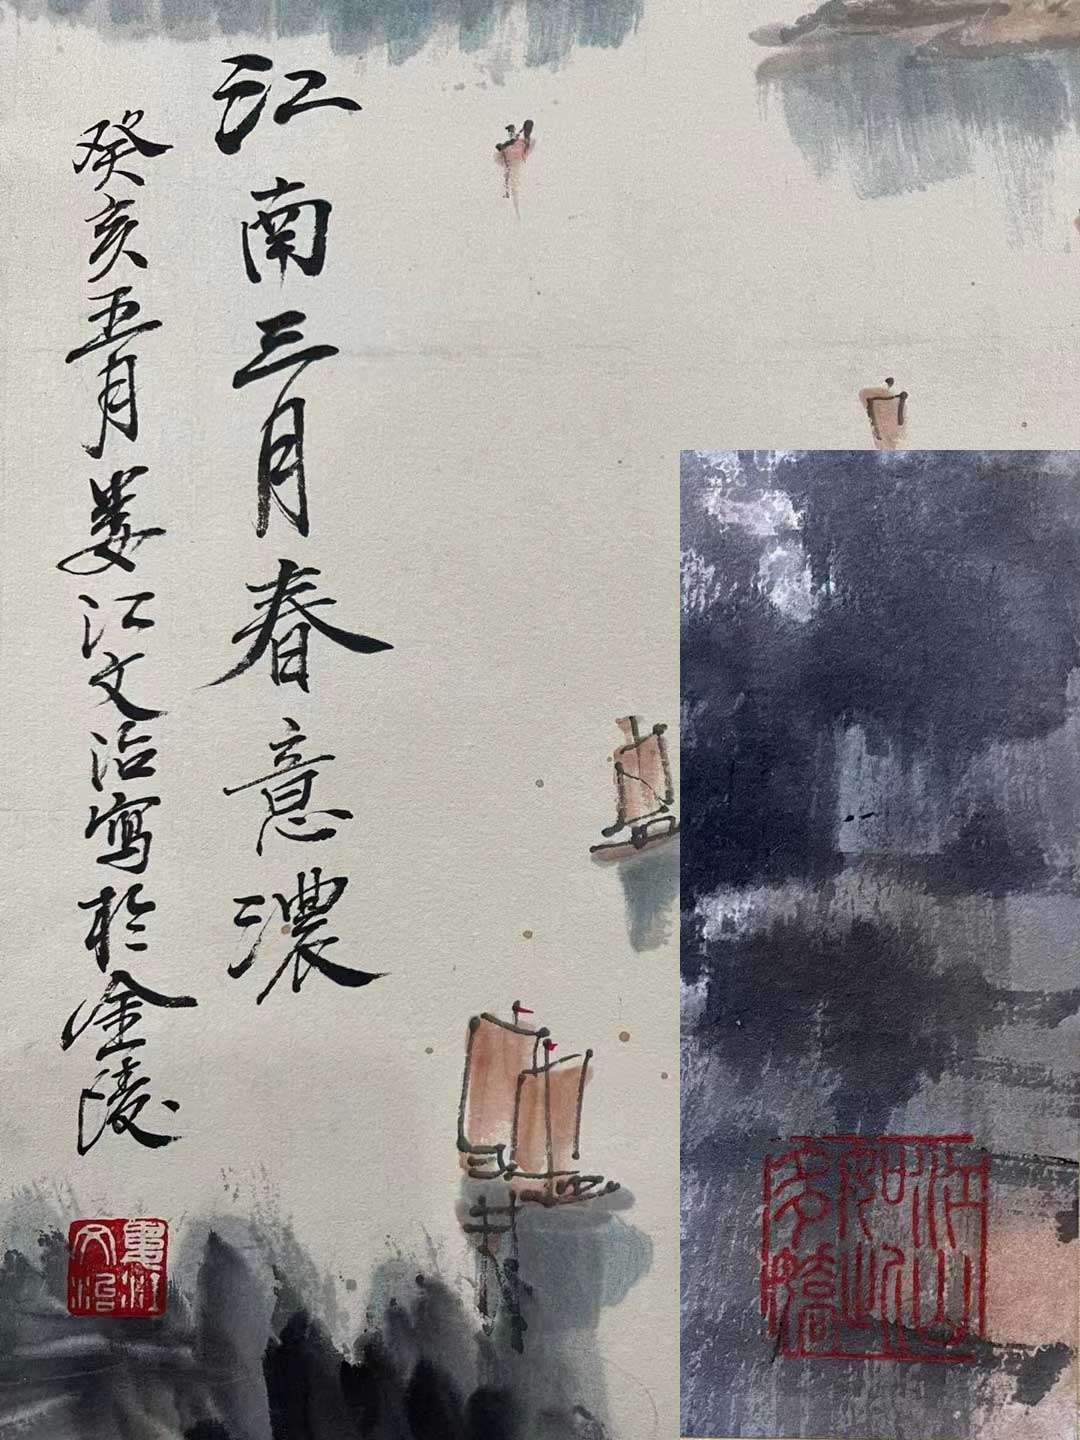 江南三月春意濃
癸亥五月婁江文治寫於金陵
婁州文治
江山如此多嬌